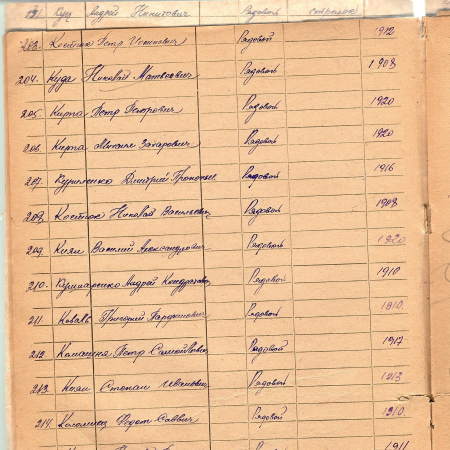 Куц Андрей Никитович Рядовой стрелок
203. Костюк Петр Устинович Рядовой 1912
204. Куда Николай Матвеевич Рядовой 1908
205. Кирпа Петр Петрович Рядовой 1920
206. Кирпа Михаил Захарович Рядовой 1920
207. Куриленко Дмитрий Прокопьев Рядовой 1916
208. Костюк Николай Васильевич Рядовой 1908
209. Киян Василий Александрович Рядовой 1920
210. Кушнаренко Андрей Кондратович Рядовой 1910
211. Коваль Григорий Парфинович Рядовой 1910
212. Комашня Петр Самойлович Рядовой 1917
213. Киян Степан Иванович Рядовой 1913
214. Коломиец Федот Саввич Рядовой 1910
1911